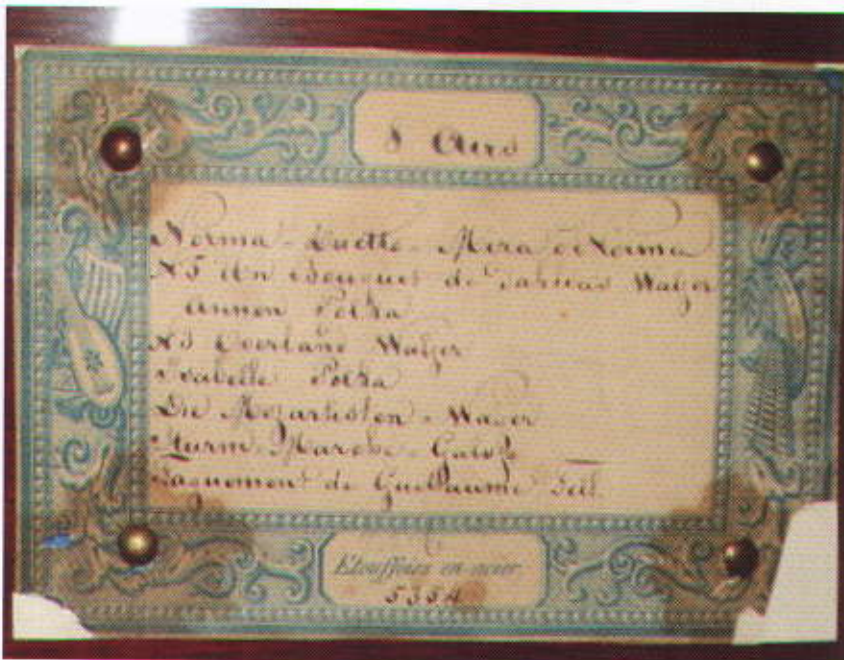 8 Airs
Norma - Duetto - Mira o Norma
N5 Un Bouquet de Walzer
Annen Polka
N3 Walzer
Isabelle Polka
Die Mozartisten - Walzer
Sturm-Marsch-Galop
de Guillaume Tell
Etouffoirs en acier
5554